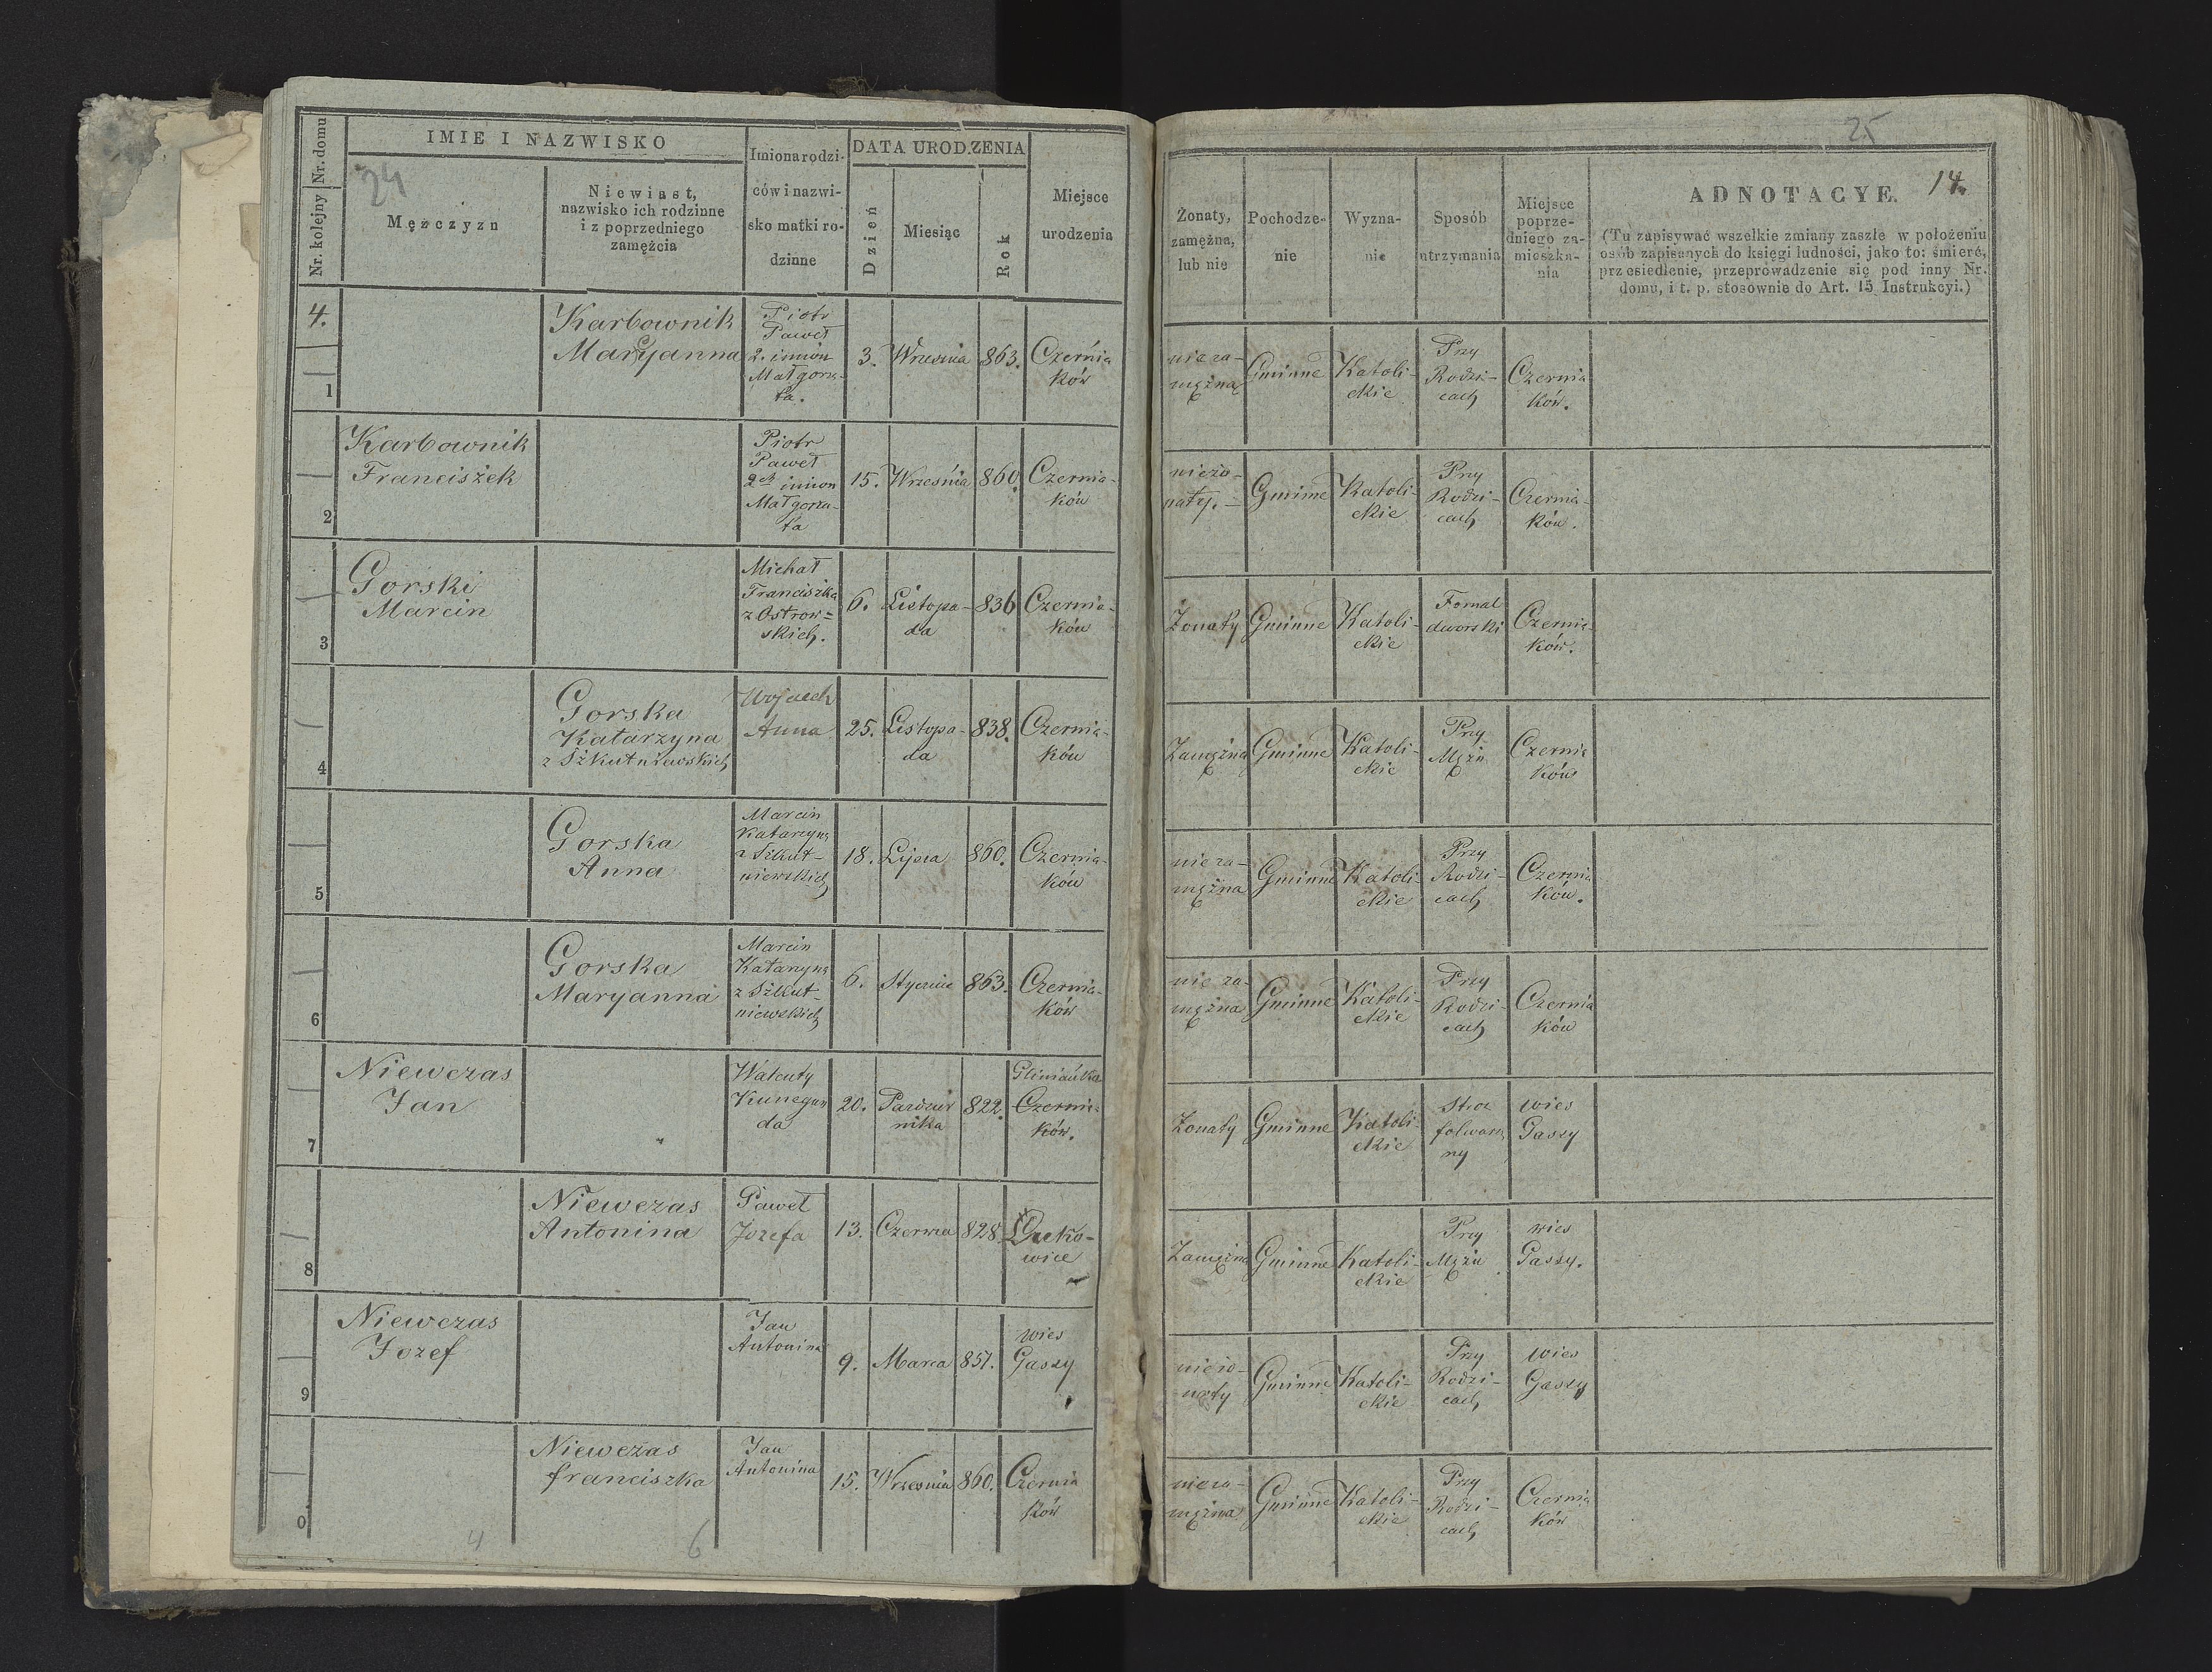 Nr. kolejny Nr. domu
IMIE I NAZWISKO
24
Mężczyzn
Niewiast,
nazwisko ich rodzinne
i z poprzedniego
zamężcia
Imiona rodzi-
ców i nazwi-
sko matki ro-
dzinne
DATA URODZENIA
Dzień
Miesiąc
Rok
Miejsce
urodzenia
4.
1
Karbownik
Maryanna
Piotr
Paweł
2. imion
Małgorza-
ta.
3.
Września
863.
Czernia
ków
2
Karbownik
Franciszek
Piotr
Paweł
2ch imion
Małgorza-
ta
15.
Września
860.
Czernia-
ków
3
Gorski
Marcin
Michał
Franciszka
z Ostrow=
skich.
6.
Listopa-
da
836
Czernia-
ków
4
Gorska
Katarzyna
z Szkutniewskich
Wojciech
Anna
25.
Listopa-
da
838.
Czernia-
ków
5
Gorska
Anna
Marcin
Katarzyna
z Szkut-
niewskich
18.
Lipca
860.
Czernia-
ków
6
Gorska
Maryanna
Marcin
Katarzyna
z Szkut-
niewskich
6.
Stycznia
863.
Czernia-
ków
7
Niewczas
Jan
Walenty
Kunegun
da
20.
Paździer
nika
822.
Glinianka
Czernia-
ków.
8
Niewczas
Antonina
Paweł
Jozefa
13.
Czerwca
828.
wice
9
Niewczas
Jozef
Jan
Antonina
9.
Marca
857.
wies
Gassy
0
Niewczas
franciszka
Jan
Antonina
15.
Września
860.
Czernia
ków
4
6
25
Żonaty,
zamężna,
lub nie
Pochodze-
nie
Wyzna-
nie
Sposób
utrzymania
Miejsce
poprze-
dniego za-
mieszka-
nia
ADNOTACYE.
14.
(Tu zapisywać wszelkie zmiany zaszłe w położeniu
osób zapisanych do księgi ludności, jako to: śmierć,
przesiedlenie, przeprowadzenie się pod inny Nr.
domu, i t. p. stosownie do Art. 15 Instrukcyi.)
nieza-
mężna
Gminne
Katoli-
ckie
Przy
Rodzi-
cach
Czernia
ków.
nieżo-
naty.-
Gminne
Katoli-
ckie
Przy
Rodzi-
cach
Czernia-
ków.
Żonaty
Gminne
Katoli-
ckie
Fornal
dworski
Czernia-
ków.
Zamężna
Gminne
Katoli-
ckie
Przy
Mężu
Czernia
ków
nieza-
mężna
Gminne
Katoli-
ckie
Przy
Rodzi-
cach
Czernia
ków.
nieza-
mężna
Gminne
Katoli-
ckie
Przy
Rodzi-
cach
Czernia
ków
Żonaty
Gminne
Katoli-
ckie
Stroz
folwarcz
ny
wies
Gassy
Zamężna
Gminne
Katoli-
ckie
Przy
Mężu
wies
Gassy.
nieżo-
naty
Gminne
Katoli-
ckie
Przy
Rodzi-
cach
wies
Gassy
nieza-
mężna
Gminne
Katoli-
ckie
Przy
Rodzi-
cach
Czernia
ków